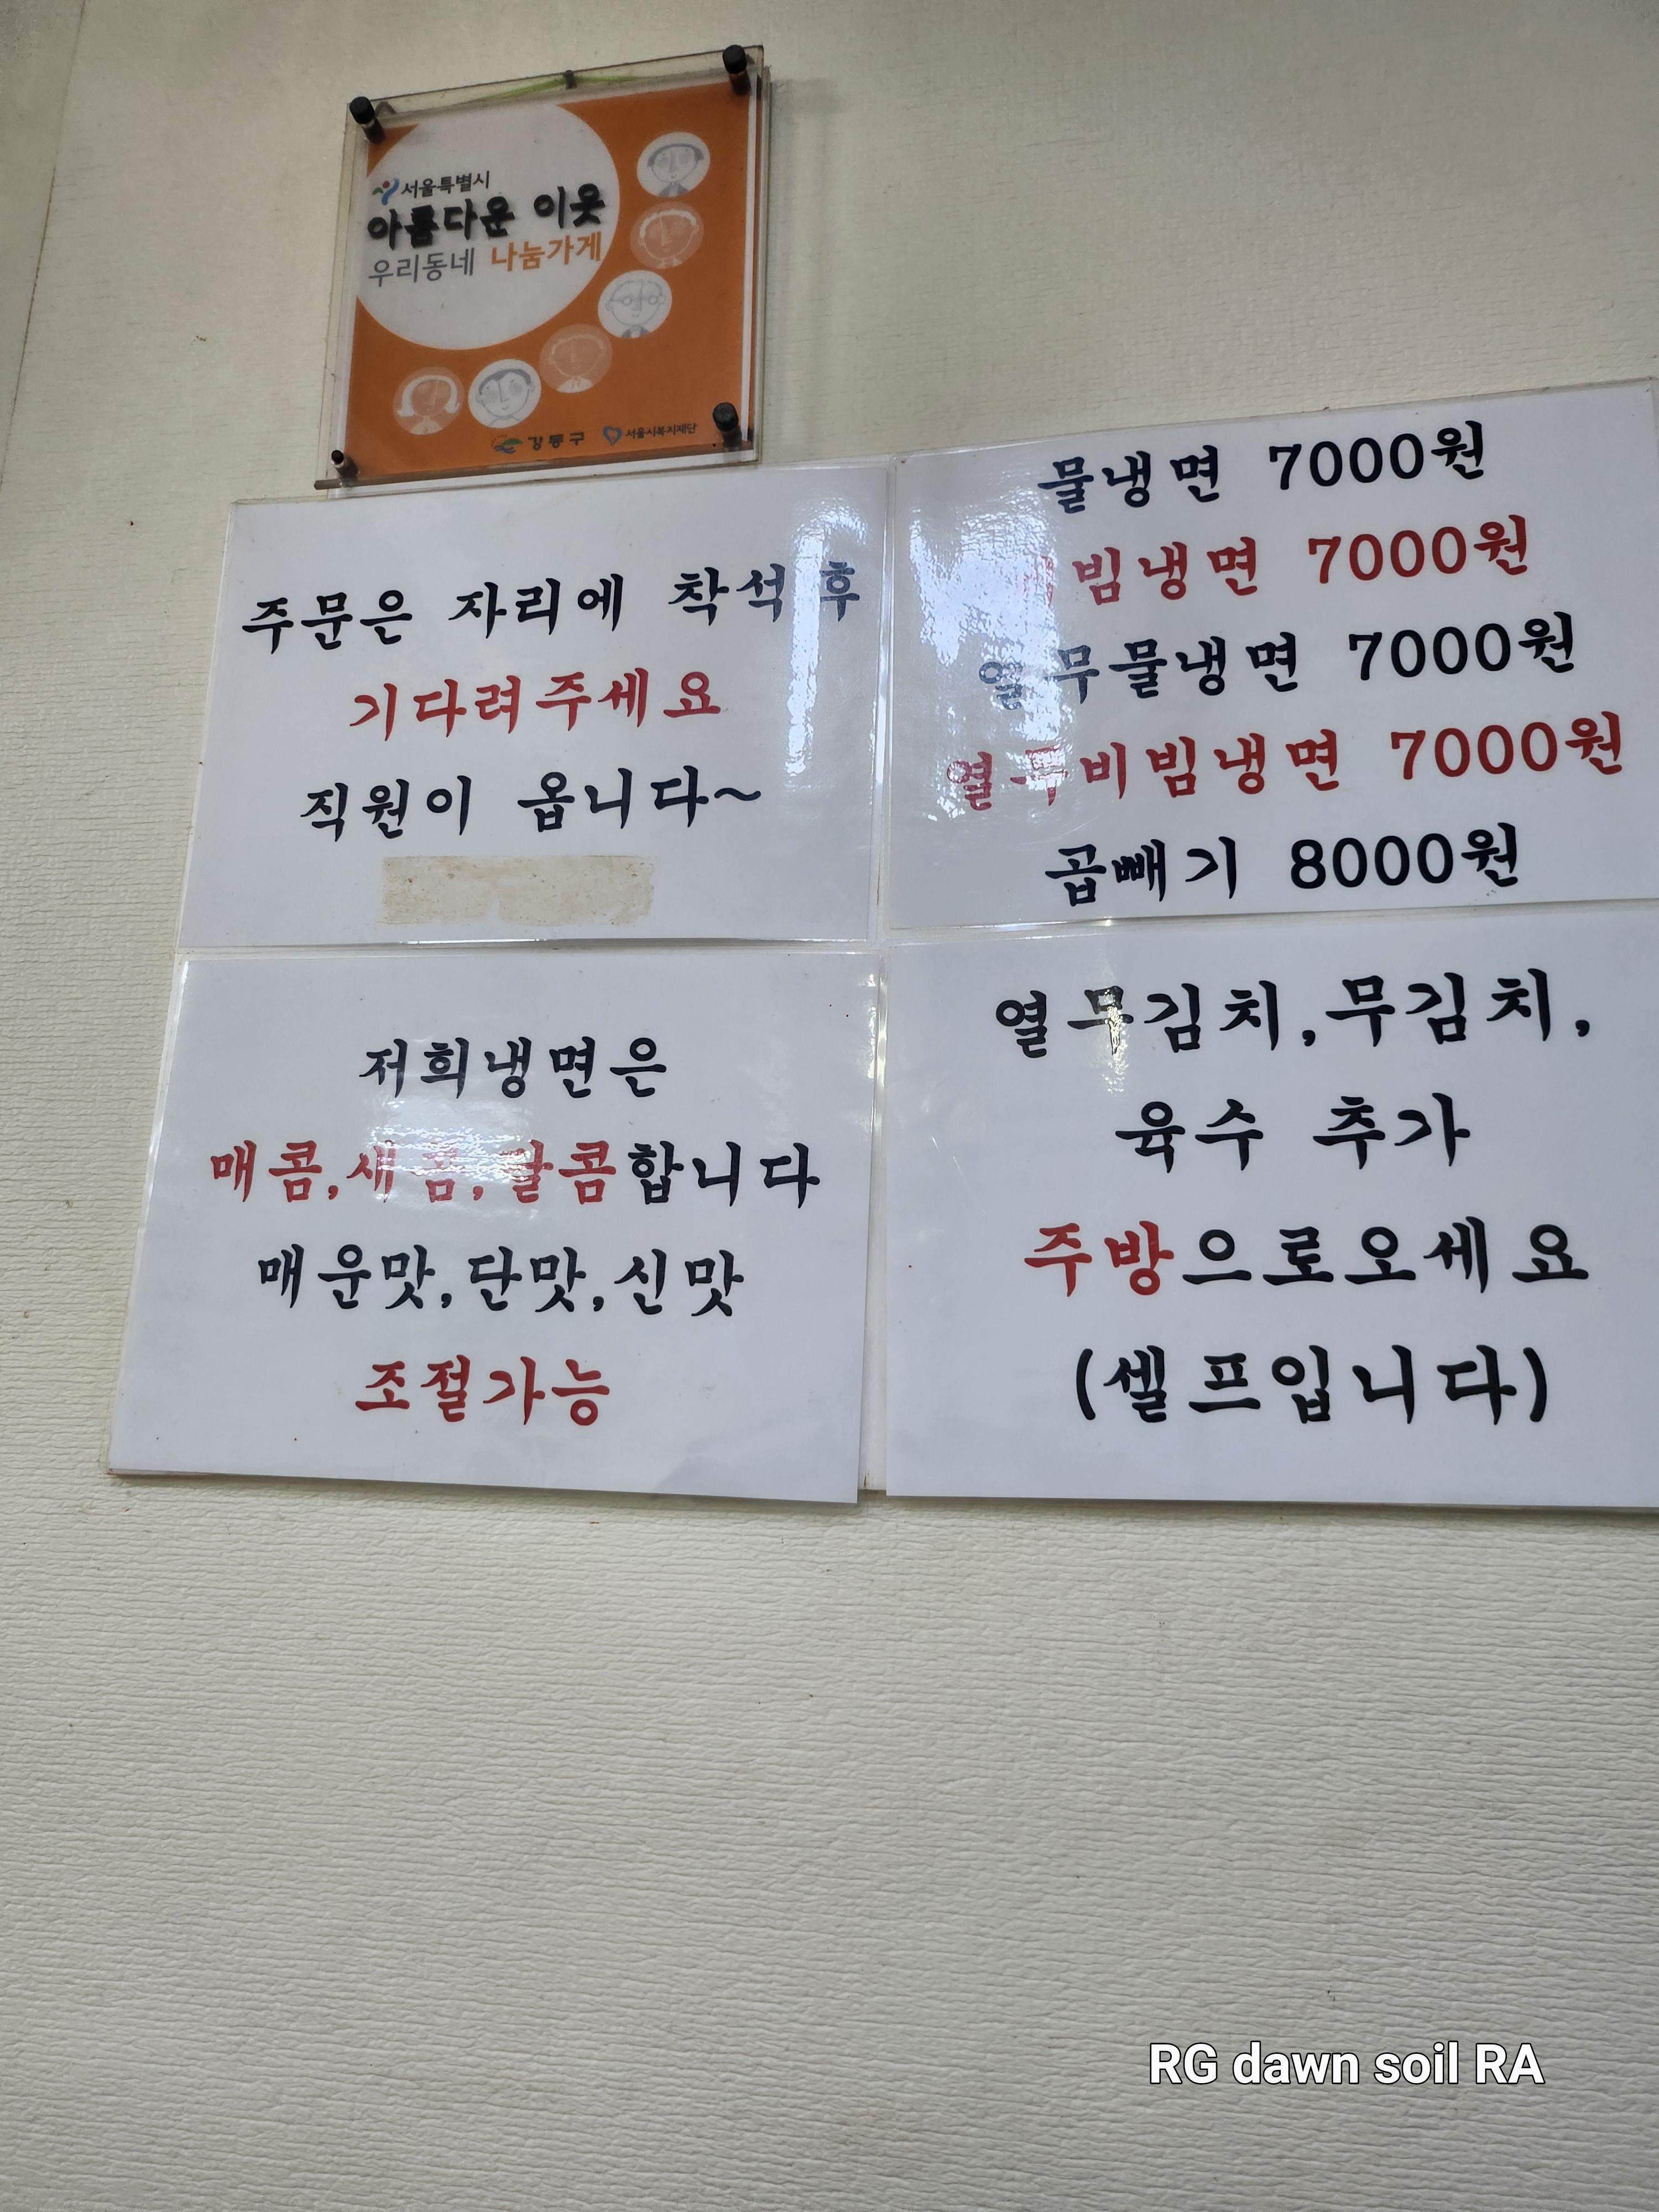 서울특별시
아름다운 이웃
우리동네 나눔가게
강동구 서울시복지재단
주문은 자리에 착석 후
기다려주세요
직원이 옵니다~
물냉면 7000원
비빔냉면 7000원
열무물냉면 7000원
열무비빔냉면 7000원
곱빼기 8000원
저희냉면은
매콤,새콤,달콤합니다
매운맛,단맛,신맛
조절가능
열무김치,무김치,
육수 추가
주방으로오세요
(셀프입니다)
RG dawn soil RA